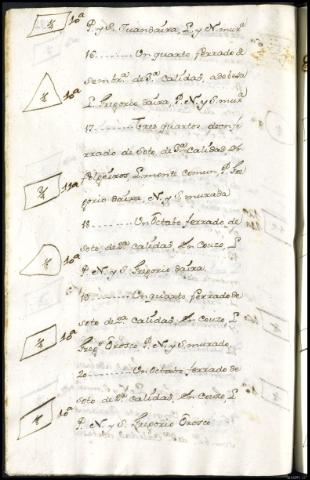 P. y S. Juan daira, L. y N. mur.ª
16......... Un quarto ferrado de
sem.ra de 3.ª calidad,
L. Gregorio daira, P. N. y S. mur.ª
17......... Tres quartos de un fe
rrado de soto, de 3.ª calidad en
felgueiros L. monte comun, P. Gre
gorio daira, N. y S. murada
18......... Un Octabo ferrado de
soto de 2.ª calidad, en Couzo, L.
P. N. y S. Gregorio daira
19......... Un quarto ferrado de
soto de 2.ª calidad, en couzo, L.
Greg.º Orosco P. N. y S. murado,
20......... Un Octabo ferrado de
soto de 2.ª calidad, en Couzo, L.
P. N. y S. Gregorio Orosco